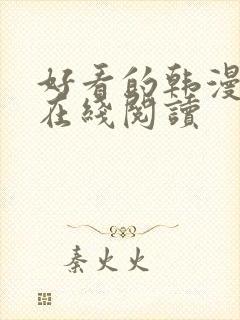 好看的韩漫
在綫閱讀
秦火火